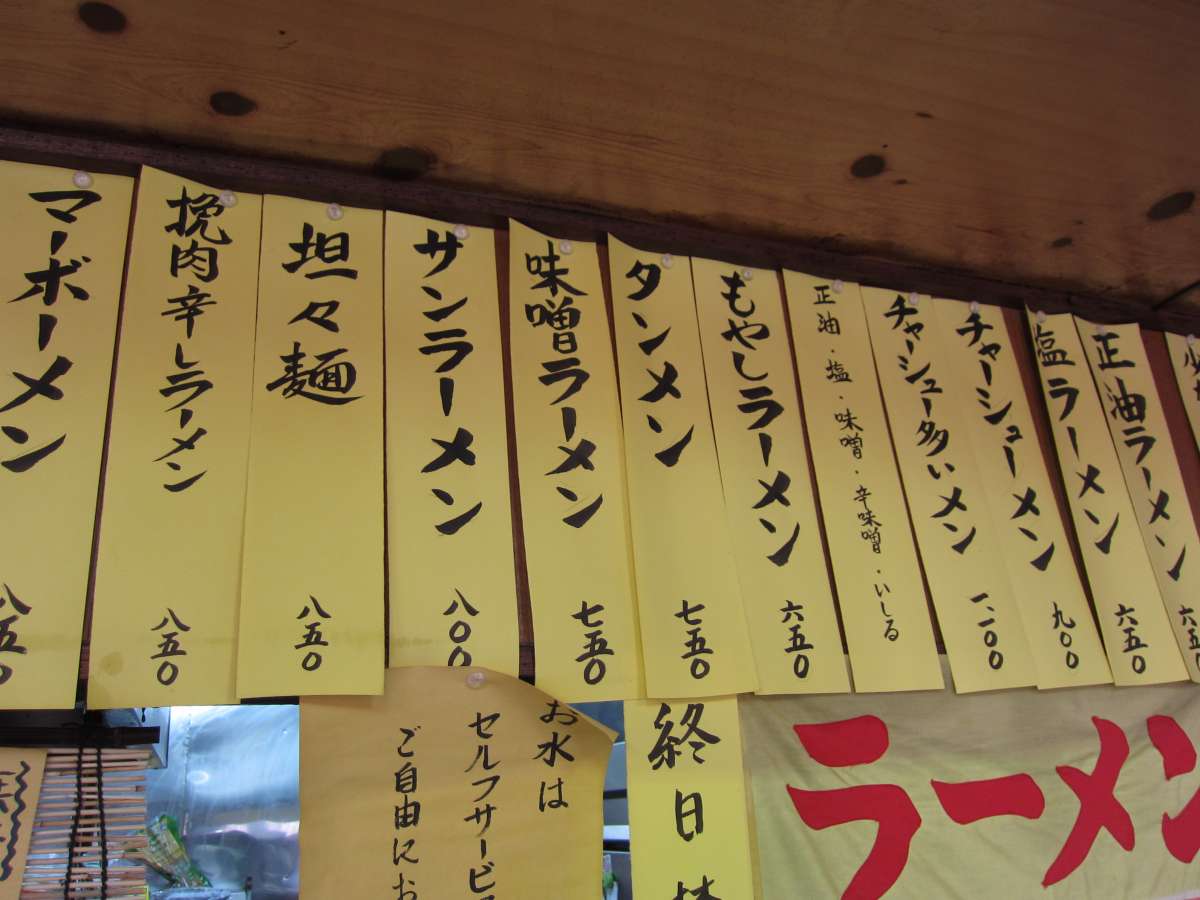 正油ラーメン 六五〇
塩ラーメン 六五〇
チャーシューメン 九〇〇
チャーシュー多いメン 一、一〇〇
正油・塩・味噌・辛味噌・いしる
もやしラーメン 六五〇
タンメン 七五〇
味噌ラーメン 七五〇
サンラーメン 八〇〇
坦々麺 八五〇
挽肉辛しラーメン 八五〇
マーボーメン 八五〇
ラーメン
終日
お水は
セルフサービス
ご自由にお